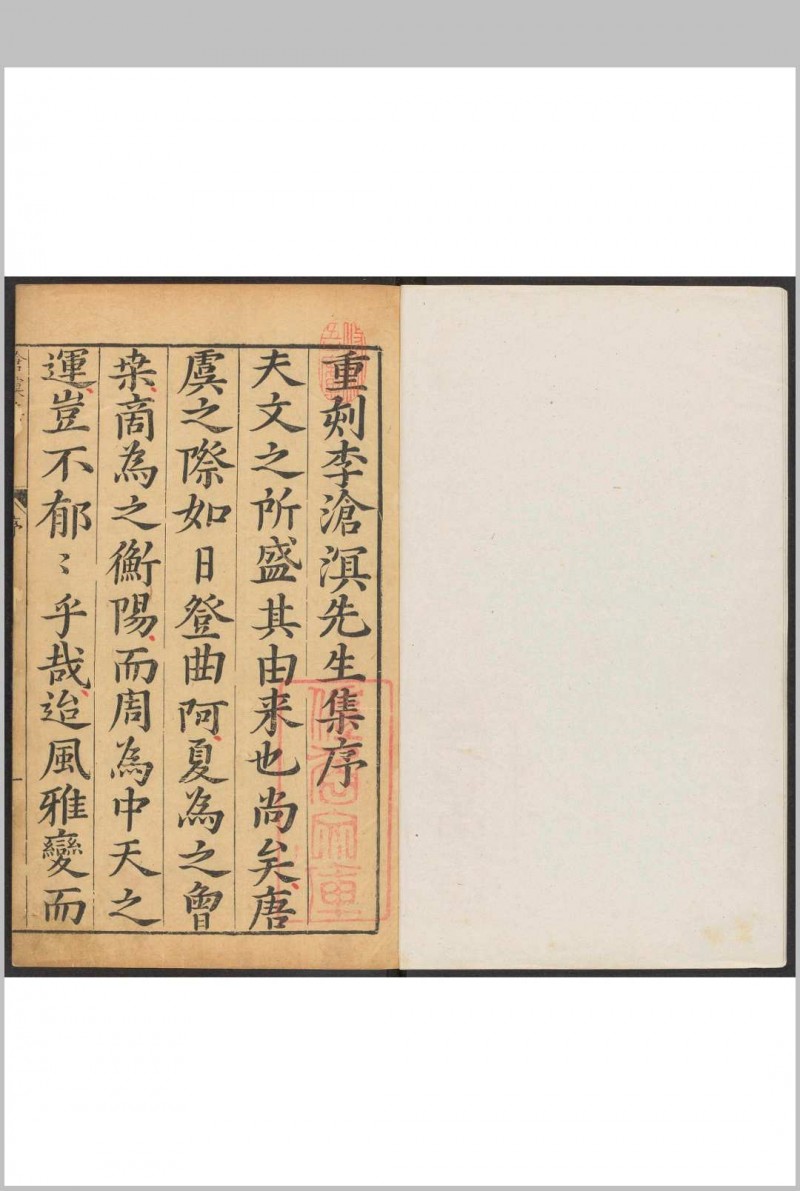 重刻李滄溟先生集序
夫文之所盛其由来也尚矣唐
虞之際如日登曲阿夏為之曾
桒商為之衡陽而周為中天之
運豈不郁〻乎哉迨風雅變而
序